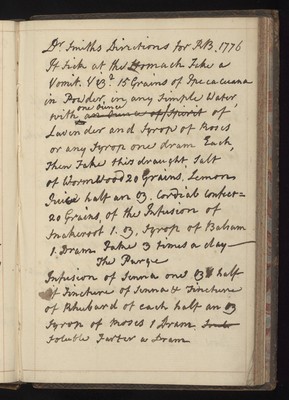 Dr. Smiths Directions for RB. 1776
If Sick at the Stomach Take a
Vomit. Viz.t 15 Grains of Ipecacuana
in Powder, in any Simple Water,
one ounce
with an ounce of Spirit of
Lavinder and Syrop of Roses
or any Syrop one dram Each,
Then Take this draught, Salt
of Wormwood 20 Grains, Lemons
Juice half an oz. Cordial Confect=
20 Grains, of the Infusion of
Snakeroot 1. oz, Syrop of Balsam
1. Dram Take 3 times a day
The Purge
Infusion of Senna one oz & half
of Tincture of Senna & Tincture
of Rhubard of each half an oz
Syrop of Roses 1 Dram
Soluble Tarter a Dram